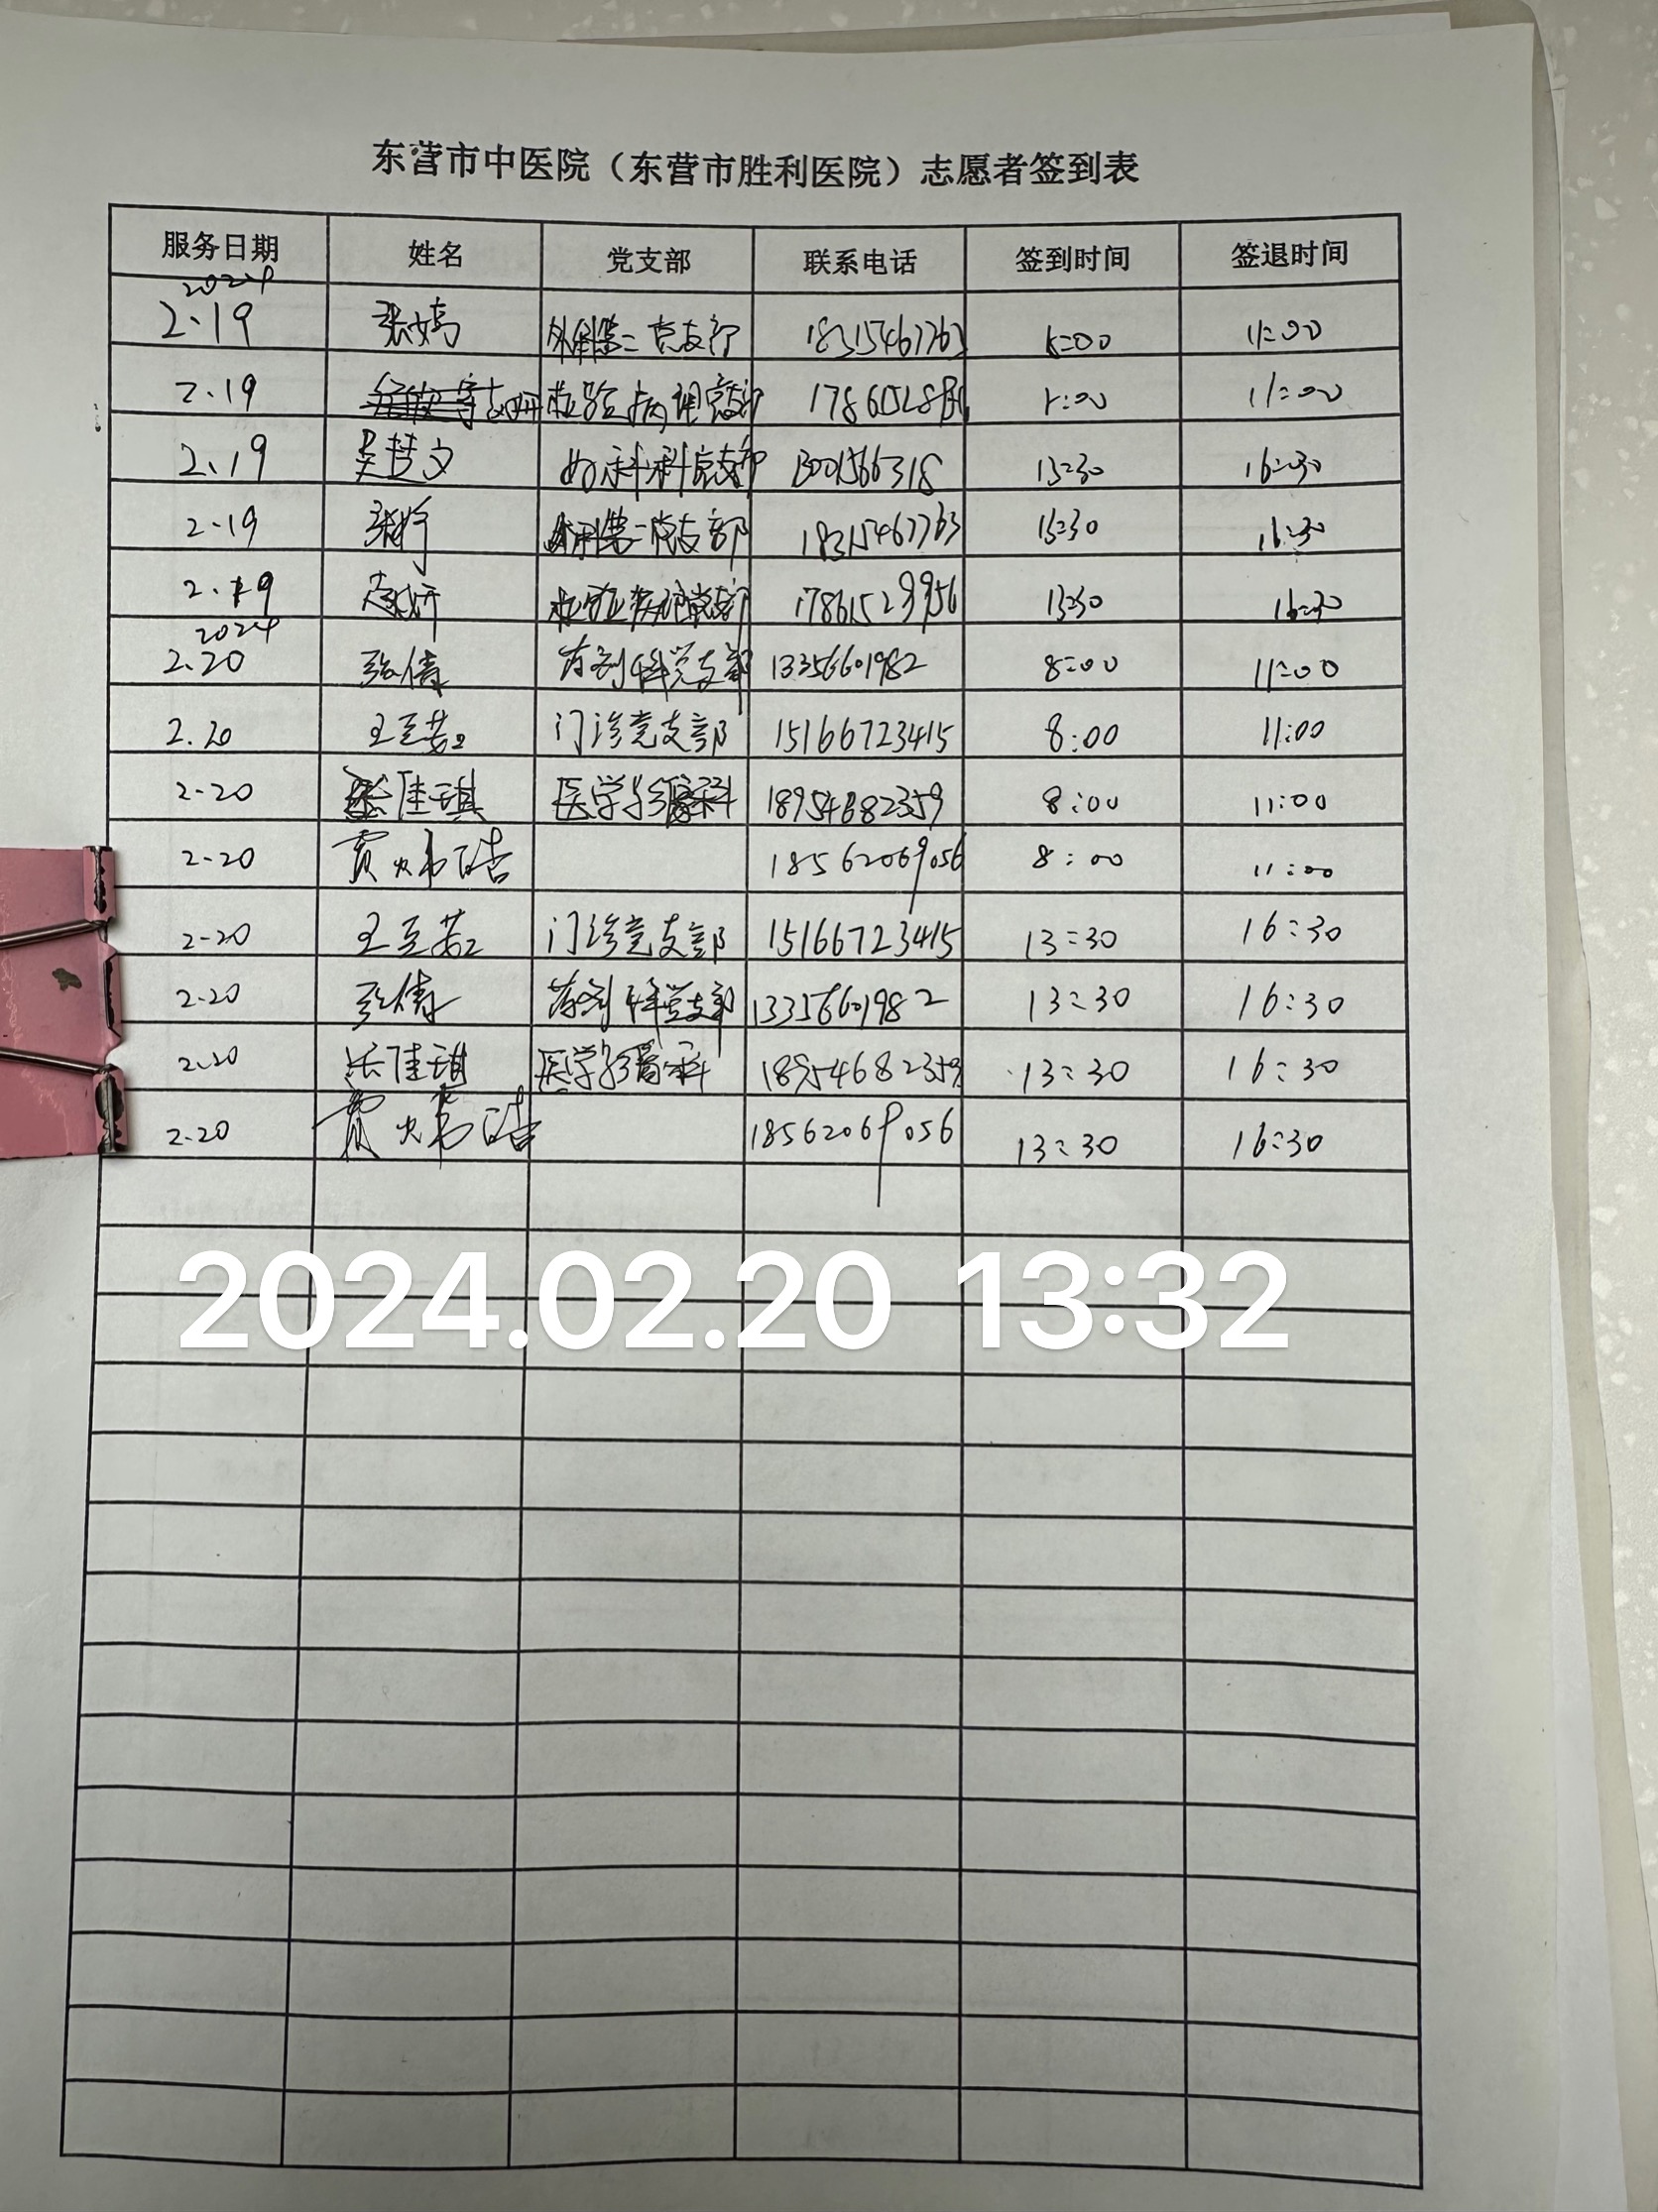 东营市中医院（东营市胜利医院）志愿者签到表
服务日期 姓名 党支部 联系电话 签到时间 签退时间
2024
2.19 外科第二党支部 18315467763 8:00 11:00
2.19 检验病理党支部 11:00
2.19 吴楚文 科党支部 13:30 16:30
2.19 外科第二党支部 18315467763 13:30 16:30
2.19 检验病理党支部 13:30 16:30
2024
2.20 张倩 药剂科党支部 13356601982 8:00 11:00
2.20 门诊党支部 15166723415 8:00 11:00
2-20 佳琪 医学影像科 18954682359 8:00 11:00
2-20 贾 皓 18562069056 8:00 11:00
2-20 门诊党支部 15166723415 13:30 16:30
2-20 张倩 药剂科党支部 13356601982 13:30 16:30
2.20 张佳琪 医学影像科 18954682359 13:30 16:30
2.20 贾 皓 18562069056 13:30 16:30
2024.02.20 13:32